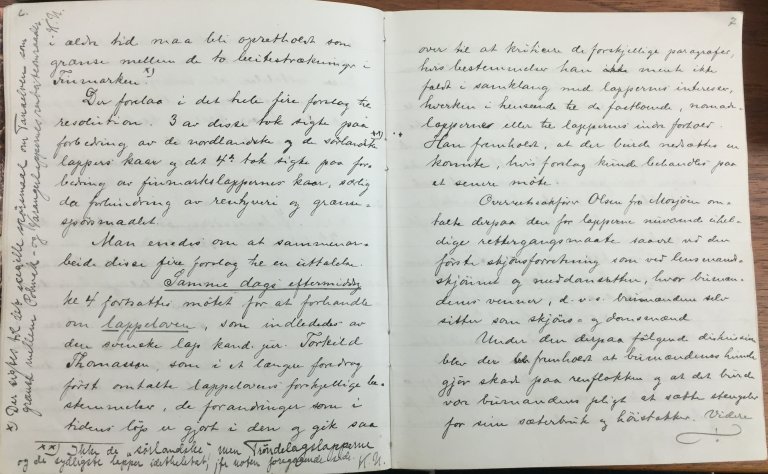 ældre tid maa bli opretholdt som
grænse mellem de to beitestrækninger i
Finmarken. x)
Der forelaa i det hele fire forslag til
resolution. 3 av disse tok sigte paa
forbedring av de nordlandske og de sörlandske xx)
lappers kaar og det 4de tok sigte paa for-
bedring av finmarkslappernes kaar, særlig
da forhindring av rentyveri og grænse-
spörsmaalet.
Man enedes om at sammenar-
beide disse fire forslag til en uttalelse.
Samme dags eftermiddag
kl. 4 fortsattes mötet for at forhandle
om lappeloven, som indlededes av
den svenske lap kand. jur. Torkild
Thomasson, som i et længre foredrag
först omtalte lappelovens forskjellige be-
stemmelser, de forandringer som i
tidens löp er gjort i den og gik saa
xx) Ikke de "sörlandske" men Tröndelagslapperne
og de sydligste lapper idethele tat, jfr. noten foregaaende side. K.N.
x) Der sigtes til det saakaldte spörsmaal om Tanaelven som
grænse mellem Polmak- og Varangerlappernes renbeiteomraade
i. K.N.
7
over til at kritisere de forskjellige paragrafer,
hvis bestemmelser han mente ikke
faldt i samklang med lappernes interesser,
hverken i henseende til de fastboende, nomade-
lapperne eller til lappernes indre forhold.
Han fremholdt, at der burde nedsættes en
komite, hvis forslag kunde behandles paa
et senere möte.
Overretssakförer Olsen fra Mosjöen om-
talte derpaa den for lapperne nuværende uhel-
dige rettergangsmaate saavel ved den
förste skjönsforretning som ved lensmand-
skjönnet og meddomsretten, hvor bumæn-
denes venner, d.v.s. bumændene selv
sitter som skjöns- og domsmænd.
Under den derpaa fölgende diskussion
blev der fremholdt at bumændenes hunde
gjör skade paa renflokken og at det burde
var bumændenes pligt at sætte stængsler
for sine sæterbruk og höistakker. Videre